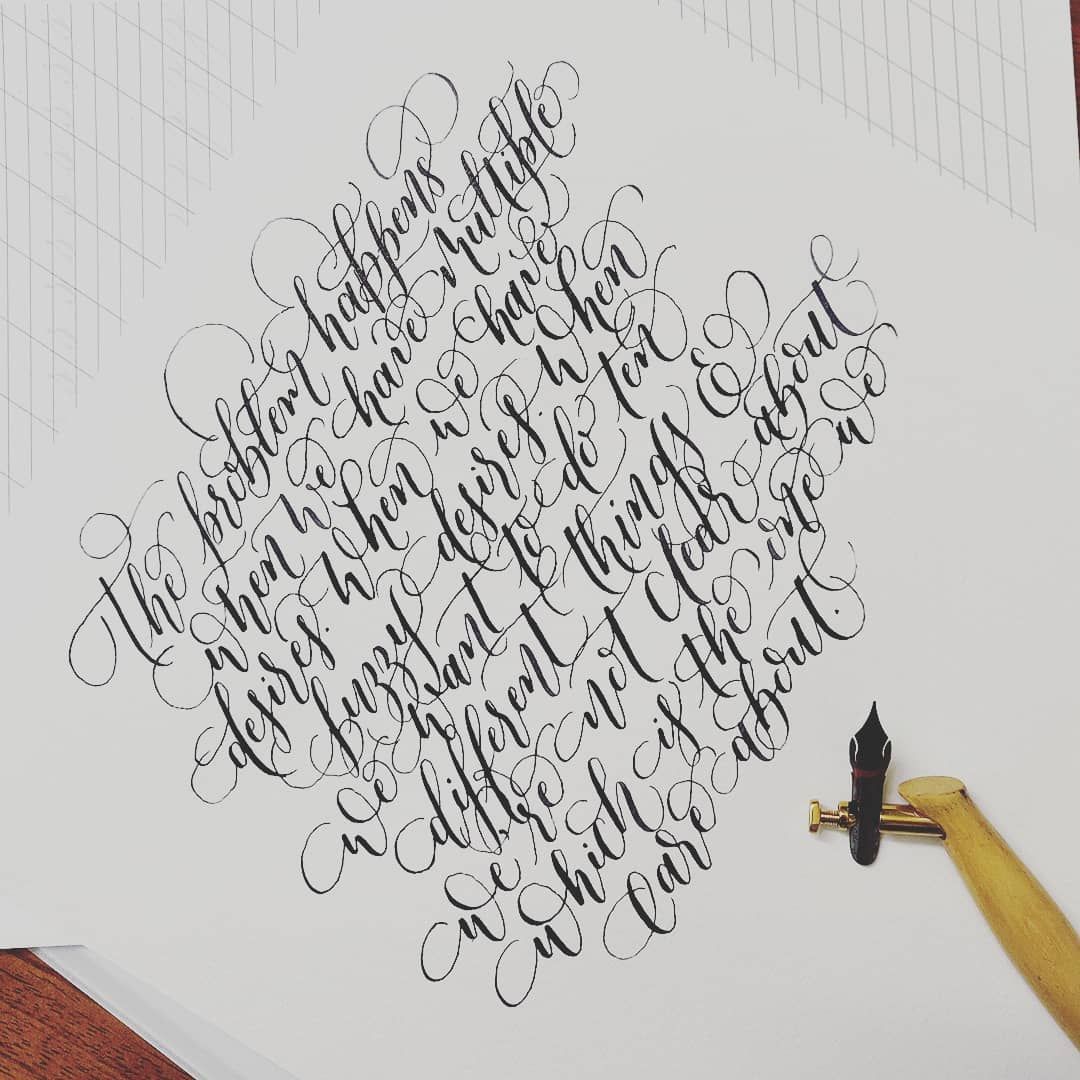 The problem happens
when we have multiple
desires. When we have
fuzzy desires. When
we want to do ten
different things &
we're not clear about
which is the one we
care about.